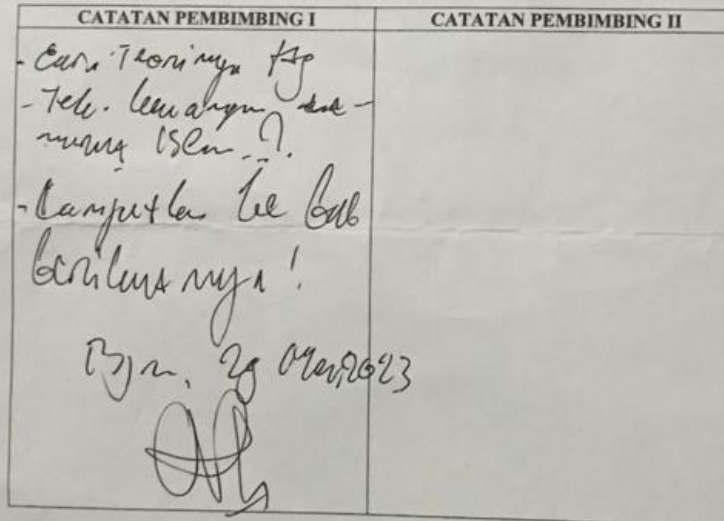 CATATAN PEMBIMBING I
CATATAN PEMBIMBING II
- Cari Teorinya ttg
- Tek. keuangan
menurut Islam ..?
- Lanjutkan ke Bab
berikutnya !
Bjm, 29 2023